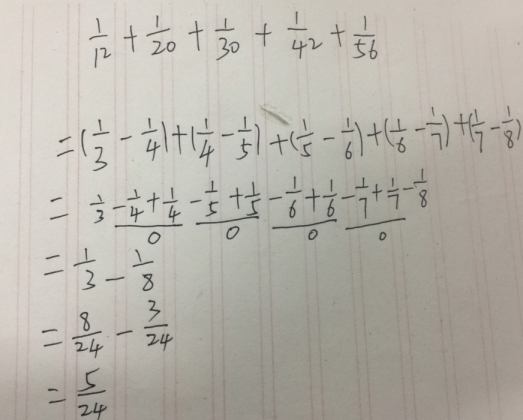 1/12 + 1/20 + 1/30 + 1/42 + 1/56
= (1/3 - 1/4) + (1/4 - 1/5) + (1/5 - 1/6) + (1/6 - 1/7) + (1/7 - 1/8)
= 1/3 - 1/4 + 1/4 - 1/5 + 1/5 - 1/6 + 1/6 - 1/7 + 1/7 - 1/8
0 0 0 0
= 1/3 - 1/8
= 8/24 - 3/24
= 5/24